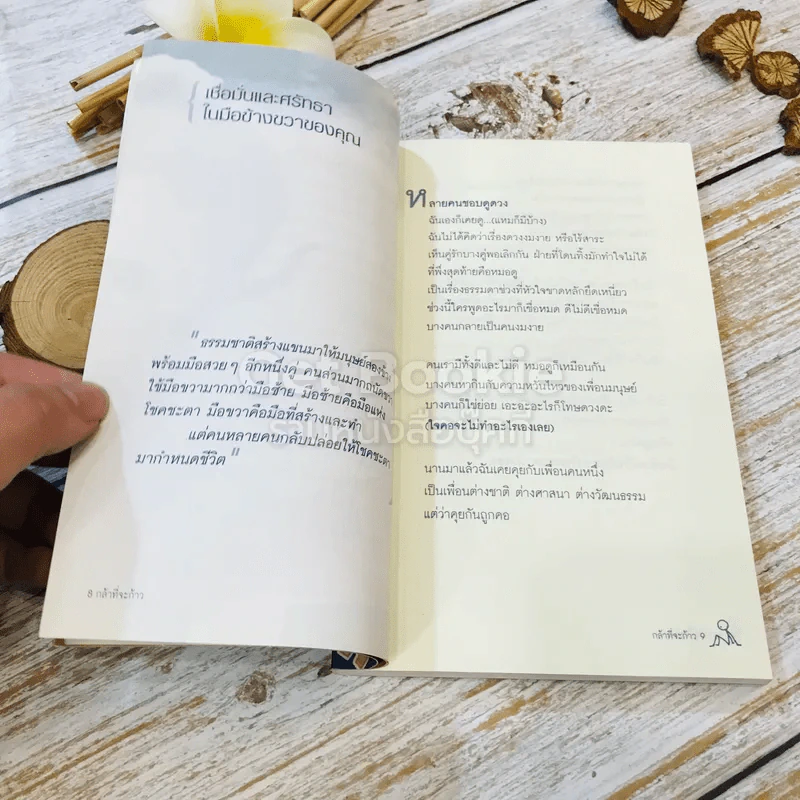 เชื่อมั่นและศรัทธา
ในมือข้างขวาของคุณ
"ธรรมชาติสร้างแขนมาให้มนุษย์สองข้าง
พร้อมมือสวย ๆ อีกหนึ่งคู่ คนส่วนมากถนัด
ใช้มือขวามากกว่ามือซ้าย มือซ้ายคือมือแห่ง
โชคชะตา มือขวาคือมือที่สร้างและทำ
แต่คนหลายคนกลับปล่อยให้โชคชะตา
มากำหนดชีวิต"
8 กล้าที่จะก้าว
หลายคนชอบดูดวง
ฉันเองก็เคยดู...(แหมก็มีบ้าง)
ฉันไม่ได้คิดว่าเรื่องดวงงมงาย หรือไร้สาระ
เห็นคู่รักบางคู่พอเลิกกัน ฝ่ายที่โดนทิ้งมักทำใจไม่ได้
ที่พึ่งสุดท้ายคือหมอดู
เป็นเรื่องธรรมดาช่วงที่หัวใจขาดหลักยึดเหนี่ยว
ช่วงนี้ใครพูดอะไรมาก็เชื่อหมด ดีไม่ดีเชื่อหมด
บางคนกลายเป็นคนงมงาย
คนเรามีทั้งดีและไม่ดี หมอดูก็เหมือนกัน
บางคนหากินกับความหวั่นไหวของเพื่อนมนุษย์
บางคนก็ใช่ย่อย เอะอะอะไรก็โทษดวงดะ
(ใจคอจะไม่ทำอะไรเองเลย)
นานมาแล้วฉันเคยคุยกับเพื่อนคนหนึ่ง
เป็นเพื่อนต่างชาติ ต่างศาสนา ต่างวัฒนธรรม
แต่ว่าคุยกันถูกคอ
กล้าที่จะก้าว 9
Get Bookie
ร้านหนังสือยุคเก่า